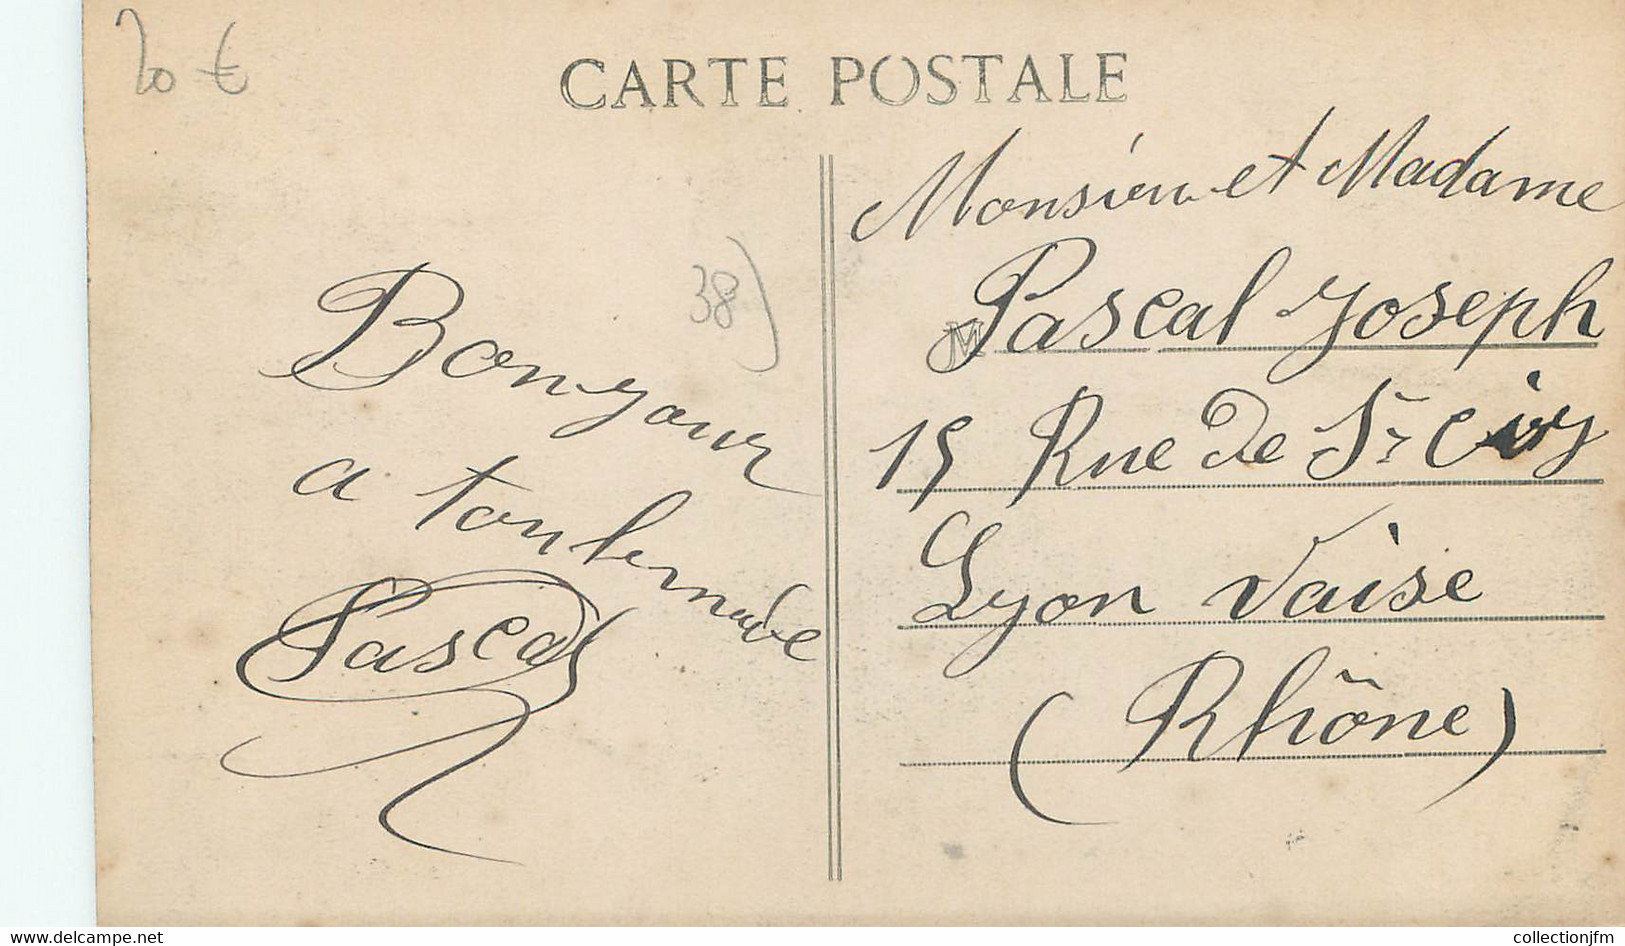 20 €
CARTE POSTALE
38)
Bonjour
a toulemonde
Pascal
Monsieur et Madame
Pascal Joseph
15 Rue de St Ciry
Lyon Vaise
(Rhône)
www.delcampe.net
collectionjfm